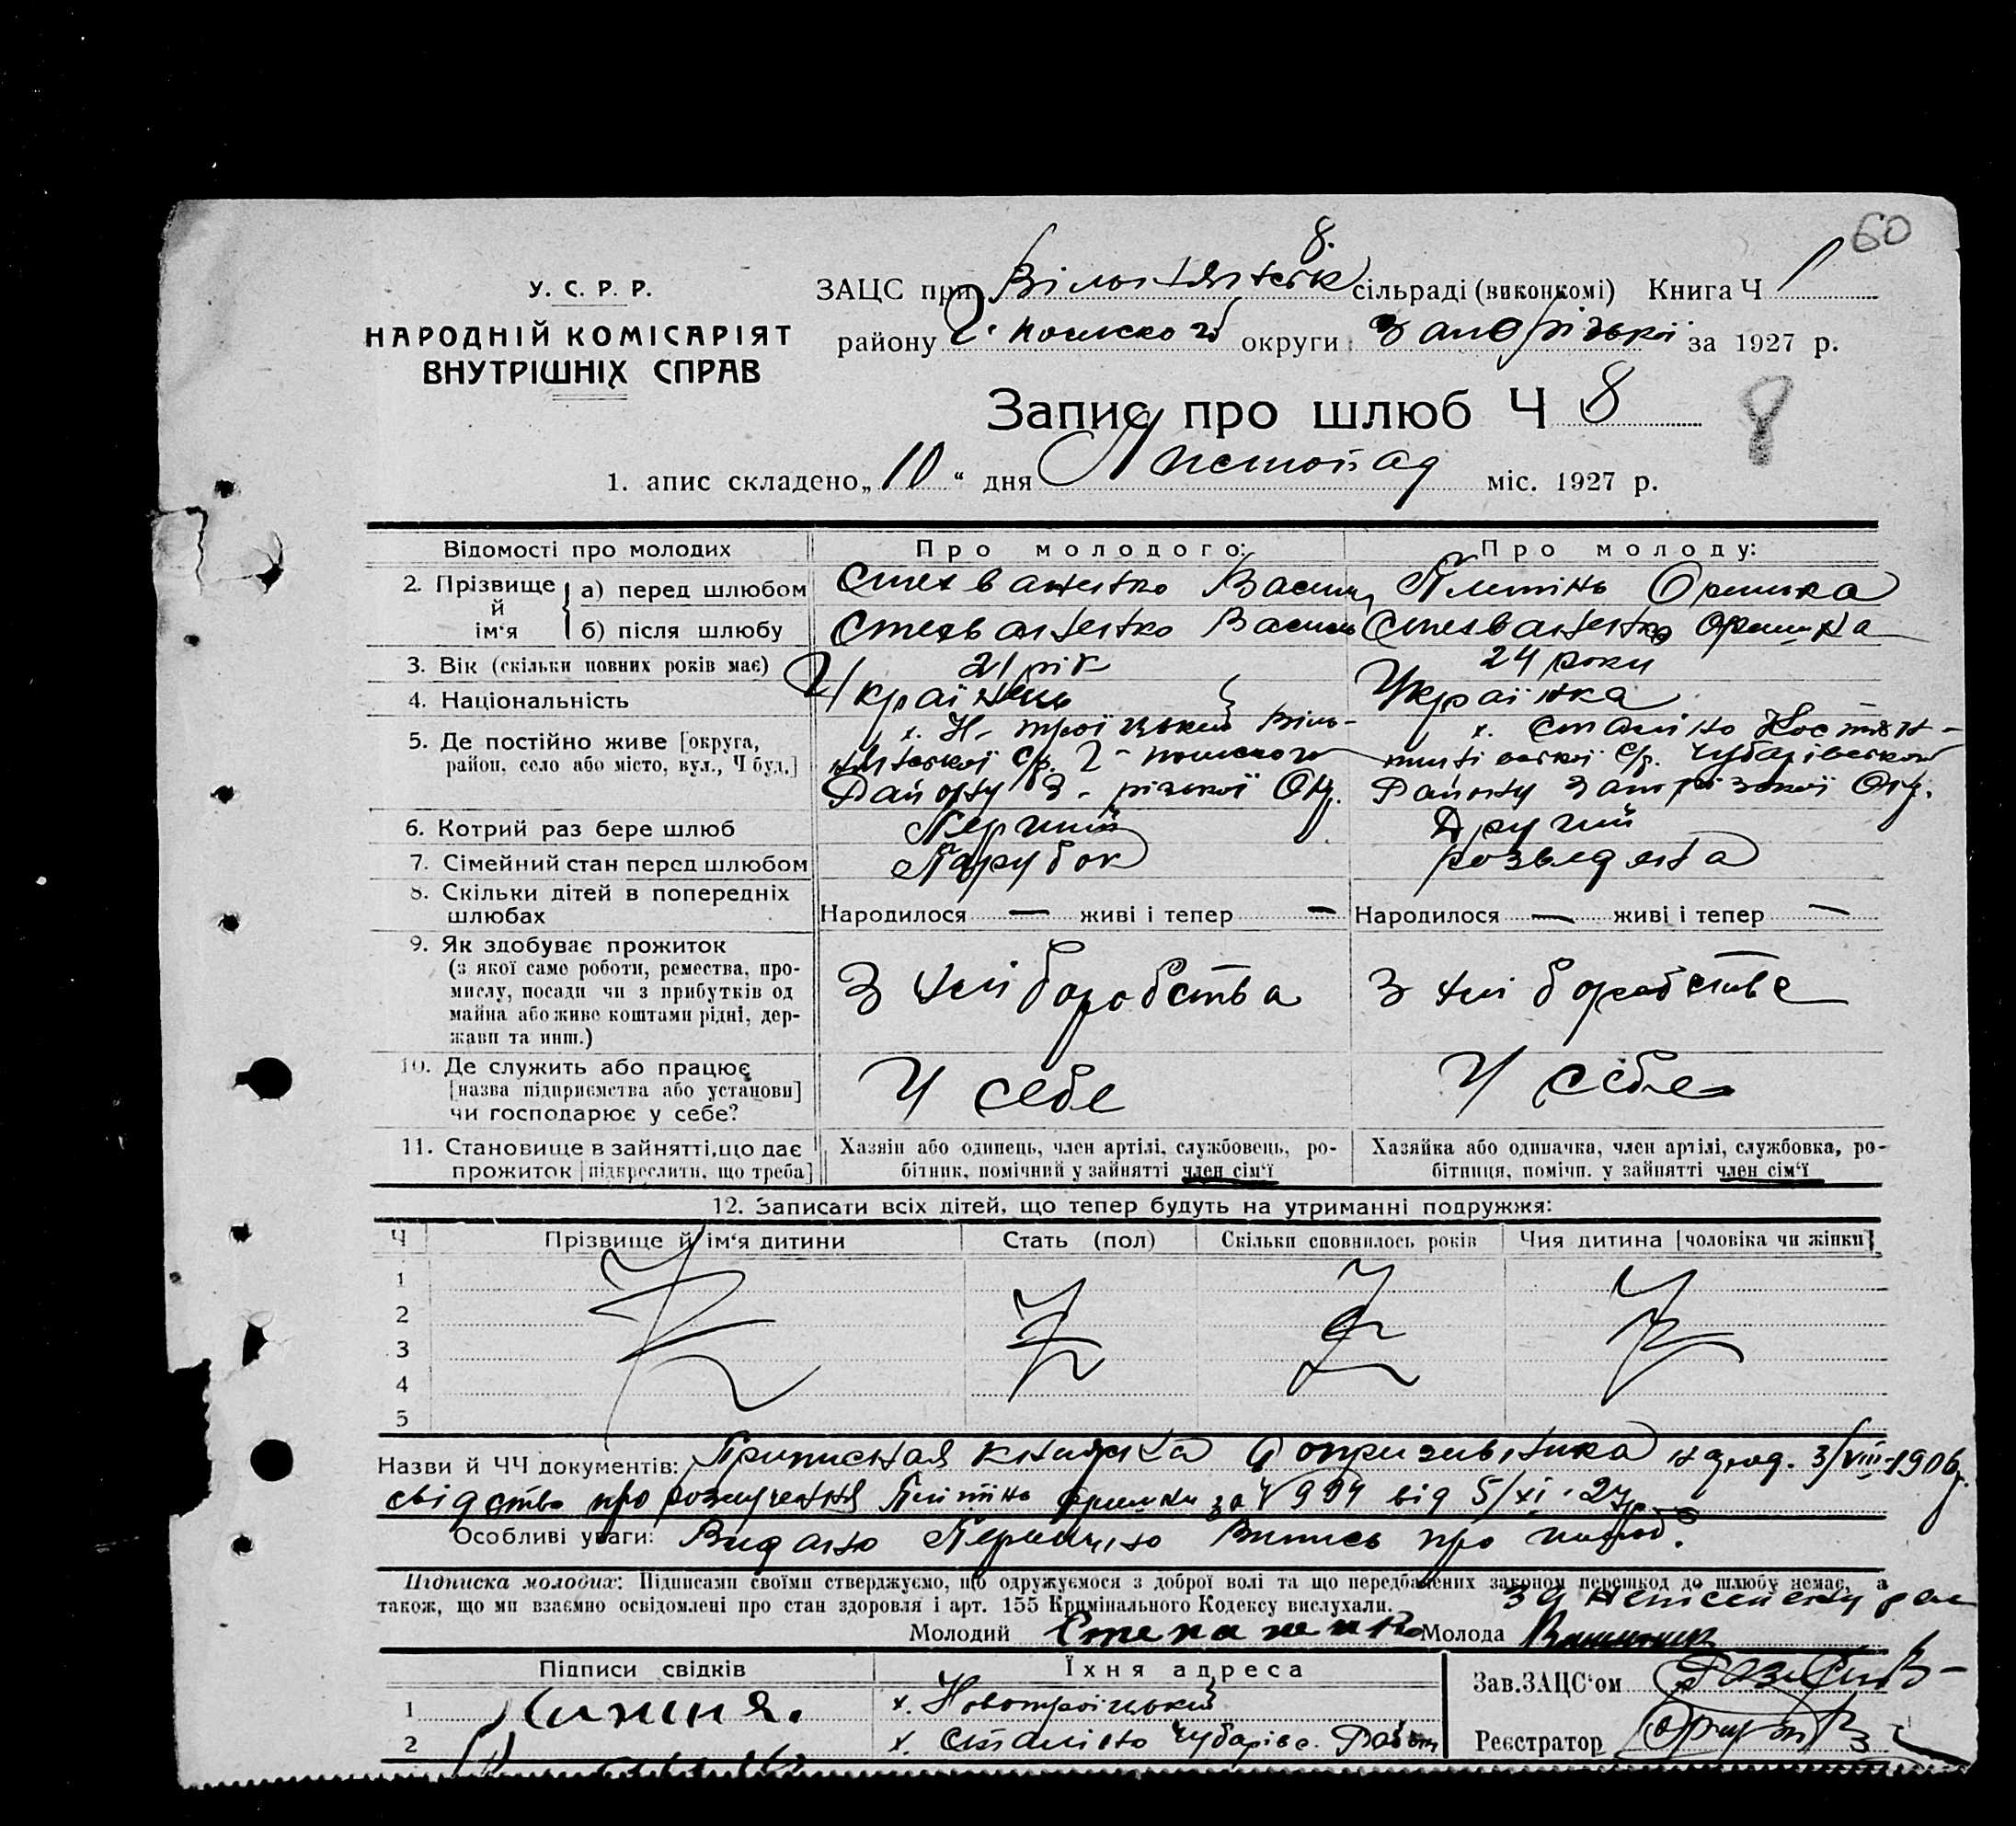 60
8.
У. С. Р. Р.
НАРОДНІЙ КОМІСАРІЯТ
ВНУТРІШНІХ СПРАВ
ЗАЦС при сільраді (виконкомі) Книга Ч 1
району округи Запорізької за 1927 р.
Запис про шлюб Ч 8
8
1. апис складено „10“ дня Листопад міс. 1927 р.
Відомості про молодих Про молодого: Про молоду:
2. Прізвище й ім‘я
а) перед шлюбом Василь Оришка
б) після шлюбу Василь Оришка
3. Вік (скільки повних років має) 21 рік 24 роки
4. Національність Українець Українка
5. Де постійно живе [округа, район, село або місто, вул., Ч буд.]
х. Н-троїцький Віль-
с/р.
Району З-різької Окр.
х. Сталіно Костян-
с/р. Чубарівського
Району Запорізької Окр.
6. Котрий раз бере шлюб Перший Другий
7. Сімейний стан перед шлюбом Парубок розведена
8. Скільки дітей в попередніх шлюбах
Народилося — живі і тепер — Народилося — живі і тепер —
9. Як здобуває прожиток
(з якої саме роботи, ремества, про-
мислу, посади чи з прибутків од
майна або живе коштами рідні, дер-
жави та инш.)
З хліборобства З хліборобства
10. Де служить або працює
[назва підприємства або установи]
чи господарює у себе?
У себе У себе
11. Становище в зайнятті, що дає
прожиток [підкреслити, що треба]
Хазяїн або одинець, член артілі, службовець, ро-
бітник, помічний у зайнятті член сім‘ї
Хазяйка або одиначка, член артілі, службовка, ро-
бітниця, помічн. у зайнятті член сім‘ї
12. Записати всіх дітей, що тепер будуть на утриманні подружжя:
Ч Прізвище й ім‘я дитини Стать (пол) Скільки сповнилось років Чия дитина [чоловіка чи жінки]
1
2
3
4
5
Назви й ЧЧ документів: Приписная книжка допризивника 3/VIII-1906
свідство про розлучення Оришки за Ч 994 від 5/XI-27р
Особливі уваги: Видано Первичну Випись про шлюб.
Підписка молодих: Підписами своїми стверджуємо, що одружуємося з доброї волі та що передбачених законом перешкод до шлюбу немає, а
також, що ми взаємно освідомлені про стан здоровля і арт. 155 Кримінального Кодексу вислухали.
за
Молодий Молода
Підписи свідків Їхня адреса
1 х. Новотроїцький
2 х. Сталіно Чубарівс. Район
Зав. ЗАЦС‘ом
Реєстратор